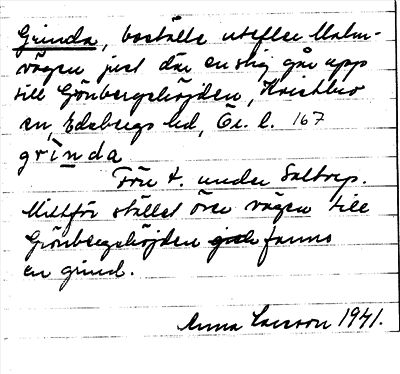 Grinda, boställe utefter Malm-
vägen just där en stig går upp
till Grönbergshöjden,
en, Edsbergs hd, Ör. l. 167
grinda
Förr t. under Saltorp.
Mittför stället över vägen till
Grönbergshöjden fanns
en grind.
Anna Larsson 1941.